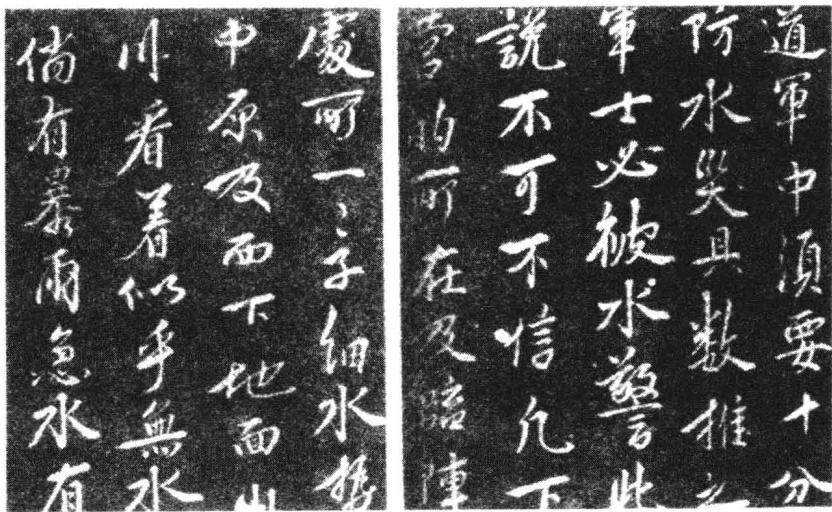 道軍中須要十分
防水災具数推之
軍士必被水警此
說不可不信凡下
营的所在及臨陣
處所一〻子細水勢
中原及西下地面山
川看着似乎無水
倘有暴雨急水有